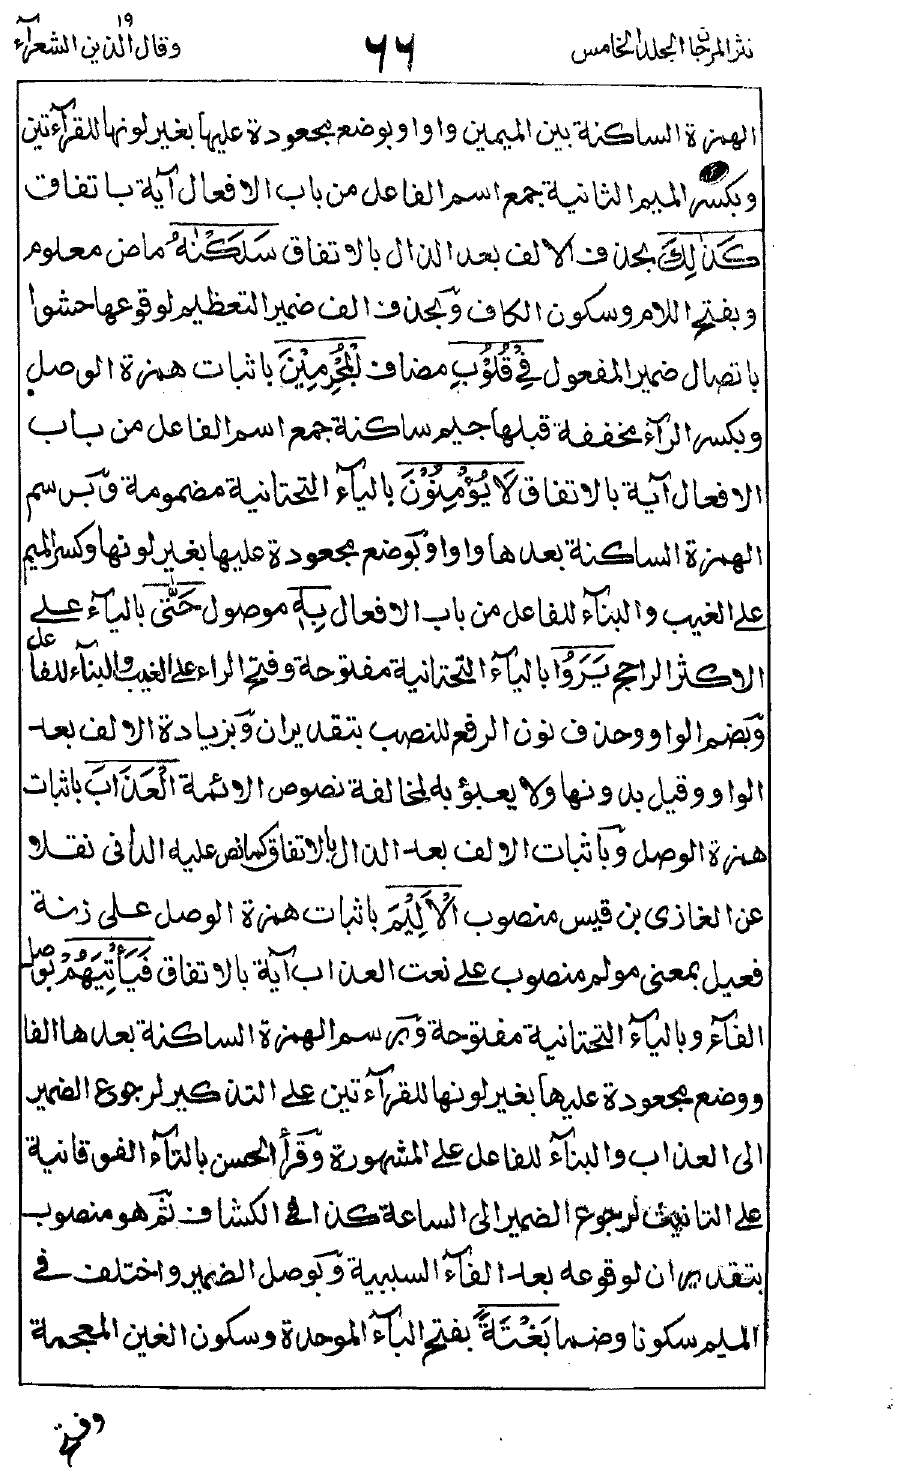 نثر المرجان المجلد الخامس
٦٦
وقال الذين ١٩ الشعرآء
الهمزة الساكنة بين الميمين واوا وبوضع مجعودة عليها بغير لونها للقرآءتين
وبكسر الميم الثانية جمع اسم الفاعل من باب الافعال آية باتفاق
كَذٰلِكَ بحذف الالف بعد الذال بالاتفاق سَلَكْنٰهُ ماض معلوم
وبفتح اللام وسكون الكاف وبحذف الف ضمير التعظيم لوقوعها حشوا
باتصال ضمير المفعول فِيْ قُلُوْبِ مضاف الْمُجْرِمِيْنَ باثبات همزة الوصل
وبكسر الرآء مخففة قبلها جيم ساكنة جمع اسم الفاعل من باب
الافعال آية بالاتفاق لَا يُؤْمِنُوْنَ باليآء التحتانية مضمومة وبرسم
الهمزة الساكنة بعدها واوا وبوضع مجعودة عليها بغير لونها وكسر الميم
على الغيب والبنآء للفاعل من باب الافعال بِهٖ موصول حَتّٰى باليآء على
الاكثر الراجح يَرَوُا باليآء التحتانية مفتوحة وفتح الراء على الغيب والبنآء للفاعل
وبضم الواو وحذف نون الرفع للنصب بتقدير ان وبزيادة الالف بعد
الواو وقيل بدونها ولا يعبؤ به لمخالفة نصوص الائمة الْعَذَابَ باثبات
همزة الوصل وباثبات الالف بعد الذال بالاتفاق كما نص عليه الدانى نقلا
عن الغازى بن قيس منصوب الْاَلِيْمَ باثبات همزة الوصل على زنة
فعيل بمعنى مولم منصوب على نعت العذاب آية بالاتفاق فَيَأْتِيَهُمْ بوصل
الفآء وباليآء التحتانية مفتوحة وبرسم الهمزة الساكنة بعدها الفا
ووضع مجعودة عليها بغير لونها للقرآءتين على التذكير لرجوع الضمير
الى العذاب والبنآء للفاعل على المشهورة وقرأ الحسن بالتآء الفوقانية
على التانيث لرجوع الضمير الى الساعة كذا فى الكشاف ثم هو منصوب
بتقدير ان لوقوعه بعد الفآء السببية وبوصل الضمير واختلف فى
الميم سكونا وضما بَغْتَةً بفتح البآء الموحدة وسكون الغين المعجمة
وفتح